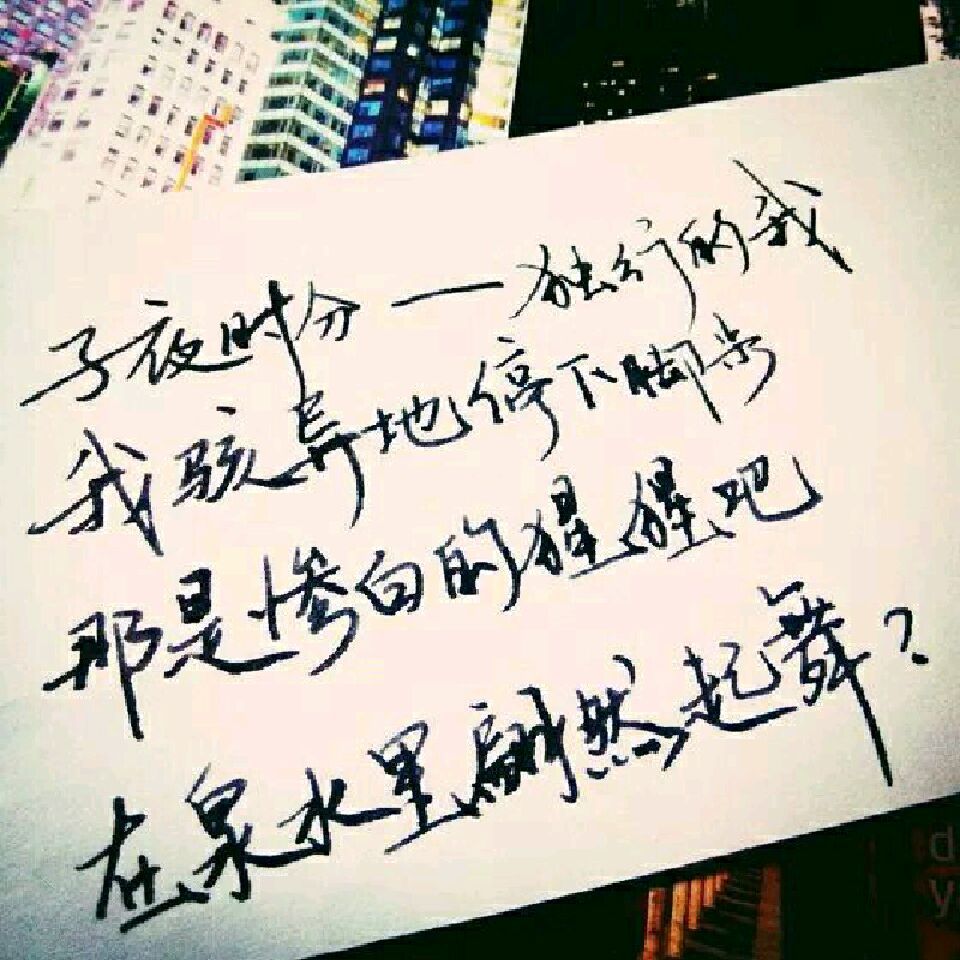 子夜时分一独行的我
我骇异地停下脚步
那是惨白的猩猩吧
在泉水里翩然起舞？
d
y